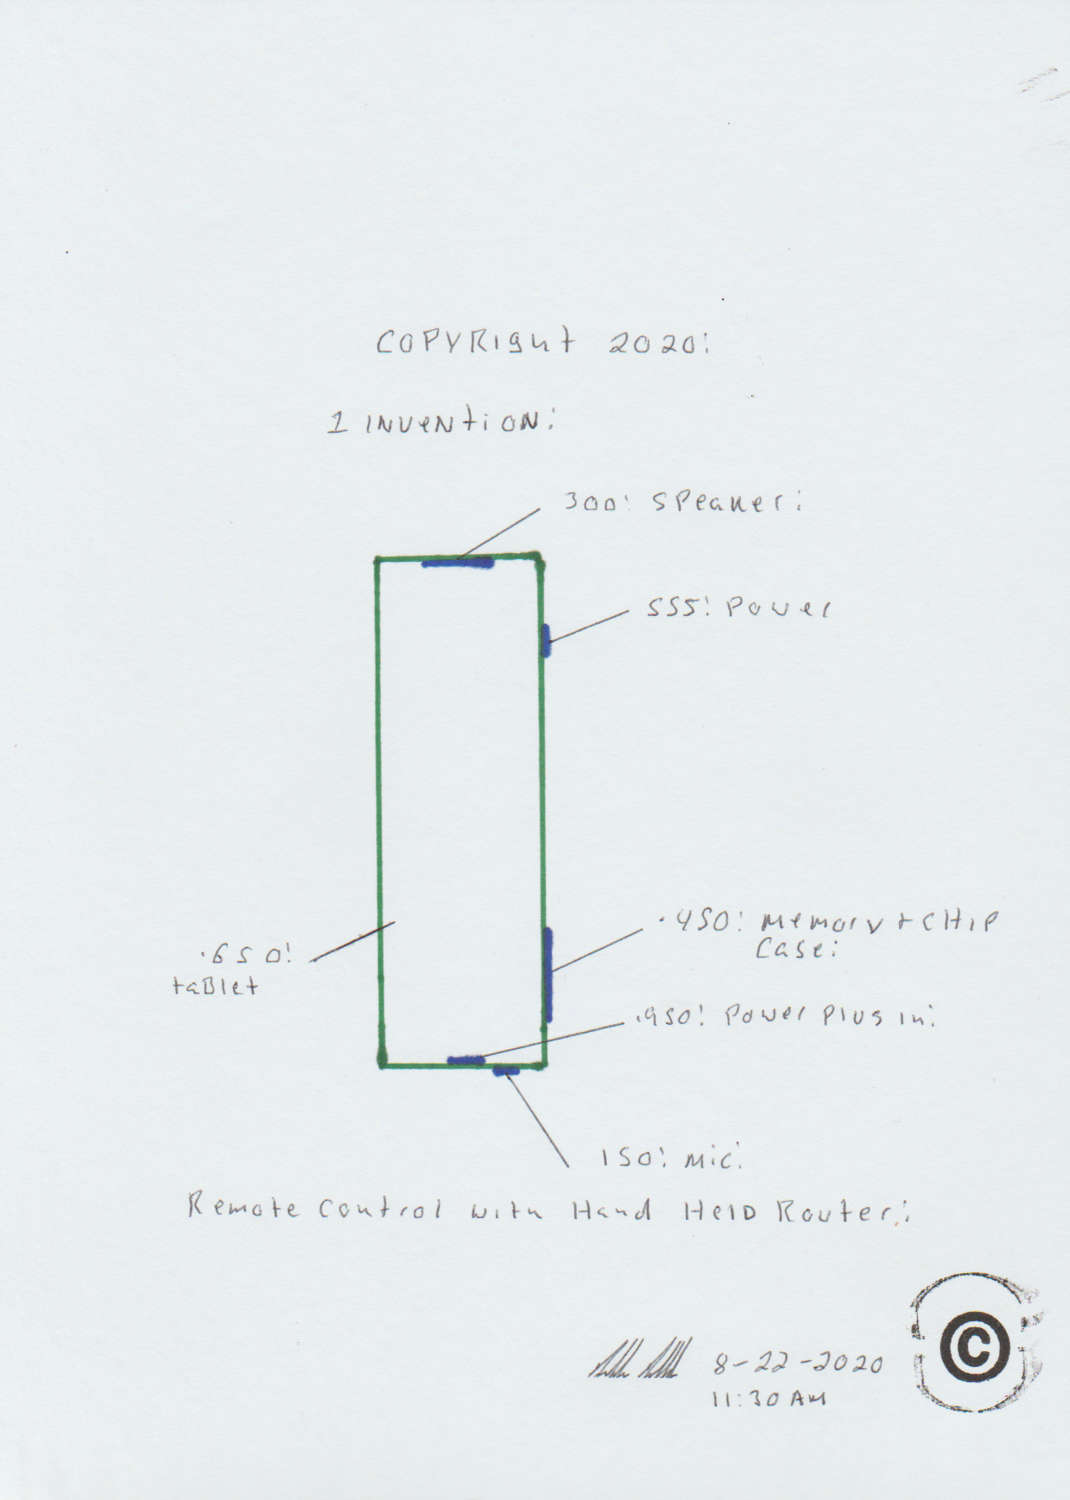 COPYRight 2020:
1 INVENtiON:
300: SPeaker:
555: Power
.450: Memory + CHIP
Case:
.650:
taBlet
.950: Power Plug in:
150: Mic:
Remote Control with Hand HelD Router:
8-22-2020
11:30 AM
©